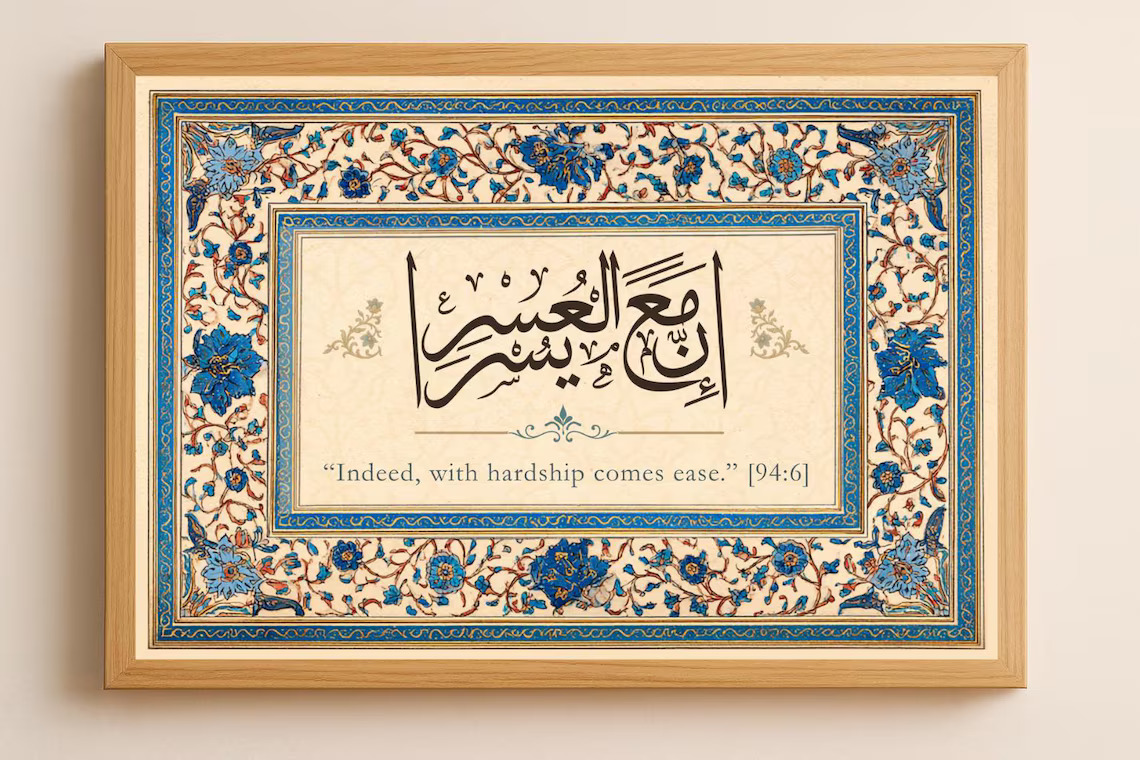 إِنَّ مَعَ العُسْرِ يُسْرًا
“Indeed, with hardship comes ease.” [94:6]